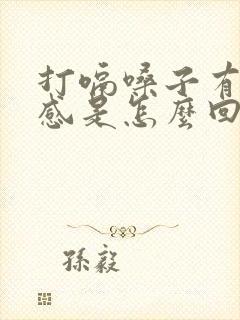 打嗝嗓子有
感是怎麼回
孫毅